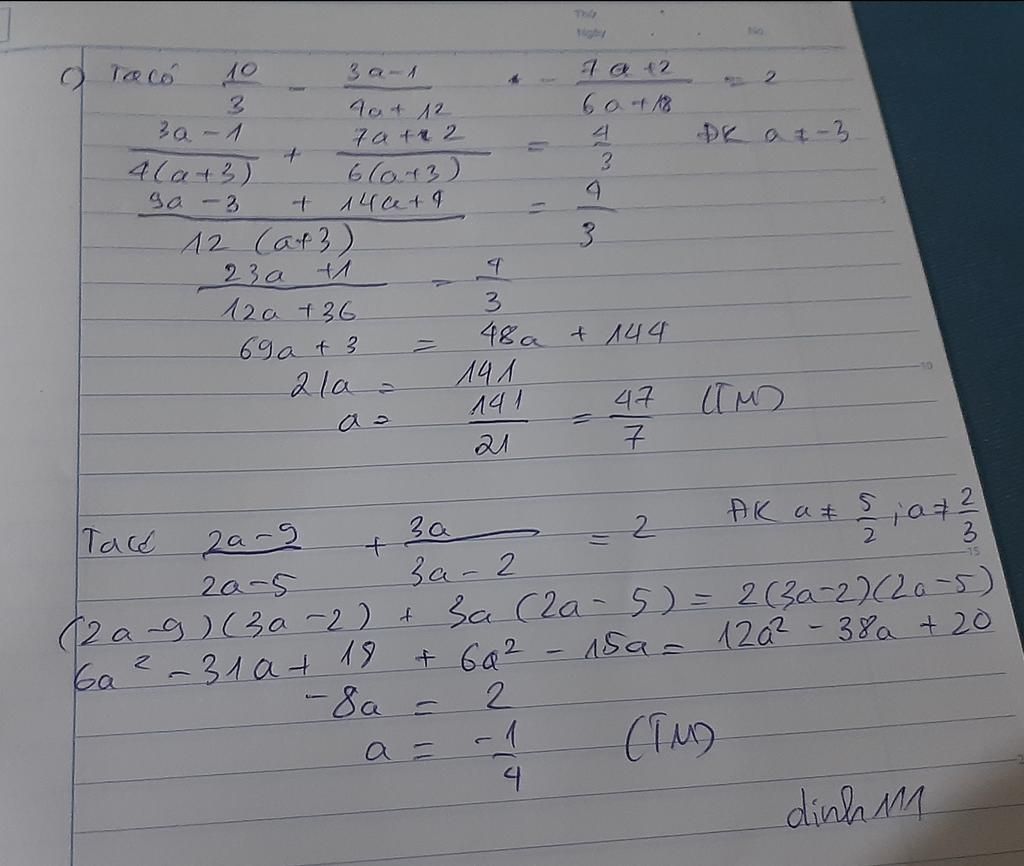 Thứ
Ngày No.
c) Ta có 10/3 - (3a-1)/(4a+12) - (7a+2)/(6a+18) = 2
(3a-1)/(4(a+3)) + (7a+2)/(6(a+3)) = 4/3 ĐK a ≠ -3
(9a-3 + 14a+4)/(12(a+3)) = 4/3
(23a+1)/(12a+36) = 4/3
69a + 3 = 48a + 144
21a = 141
a = 141/21 = 47/7 (TM)
Ta có (2a-9)/(2a-5) + 3a/(3a-2) = 2 ĐK a ≠ 5/2 ; a ≠ 2/3
(2a-9)(3a-2) + 3a(2a-5) = 2(3a-2)(2a-5)
6a² - 31a + 18 + 6a² - 15a = 12a² - 38a + 20
-8a = 2
a = -1/4 (TM)
dinh111